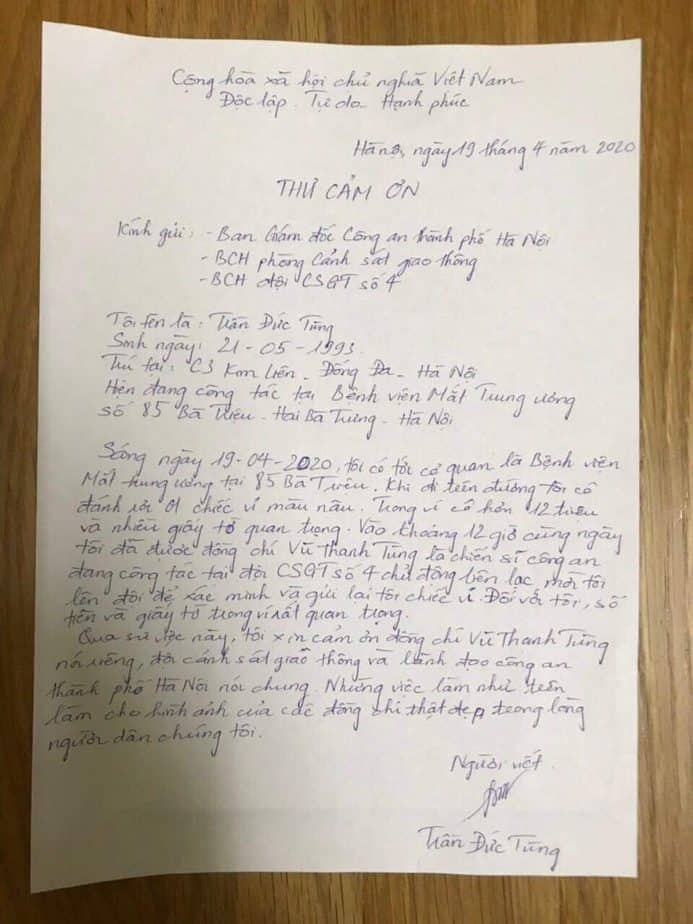 Cộng hòa xã hội chủ nghĩa Việt Nam
Độc lập. Tự do. Hạnh phúc
Hà nội, ngày 19 tháng 4 năm 2020
THƯ CẢM ƠN
Kính gửi: - Ban Giám đốc Công an thành phố Hà Nội
- BCH phòng Cảnh sát giao thông
- BCH đội CSGT số 4
Tôi tên là: Trần Đức Tùng
Sinh ngày: 21-05-1993
Trú tại: C3 Kim Liên - Đống Đa - Hà Nội
Hiện đang công tác tại Bệnh viện Mắt Trung ương
số 85 Bà Triệu - Hai Bà Trưng - Hà Nội
Sáng ngày 19-04-2020, tôi có tới cơ quan là Bệnh viện
Mắt trung ương tại 85 Bà Triệu. Khi đi trên đường tôi có
đánh rơi 01 chiếc ví màu nâu. Trong ví có hơn 12 triệu
và nhiều giấy tờ quan trọng. Vào khoảng 12 giờ cùng ngày
tôi đã được đồng chí Vũ Thanh Tùng là chiến sĩ công an
đang công tác tại đội CSGT số 4 chủ động liên lạc, mời tôi
lên đội để xác minh và gửi lại tôi chiếc ví. Đối với tôi, số
tiền và giấy tờ trong ví rất quan trọng.
Qua sự việc này, tôi xin cảm ơn đồng chí Vũ Thanh Tùng
nói riêng, đội cảnh sát giao thông và lãnh đạo công an
thành phố Hà Nội nói chung. Những việc làm như trên
làm cho hình ảnh của các đồng chí thật đẹp trong lòng
người dân chúng tôi.
Người viết
Trần Đức Tùng